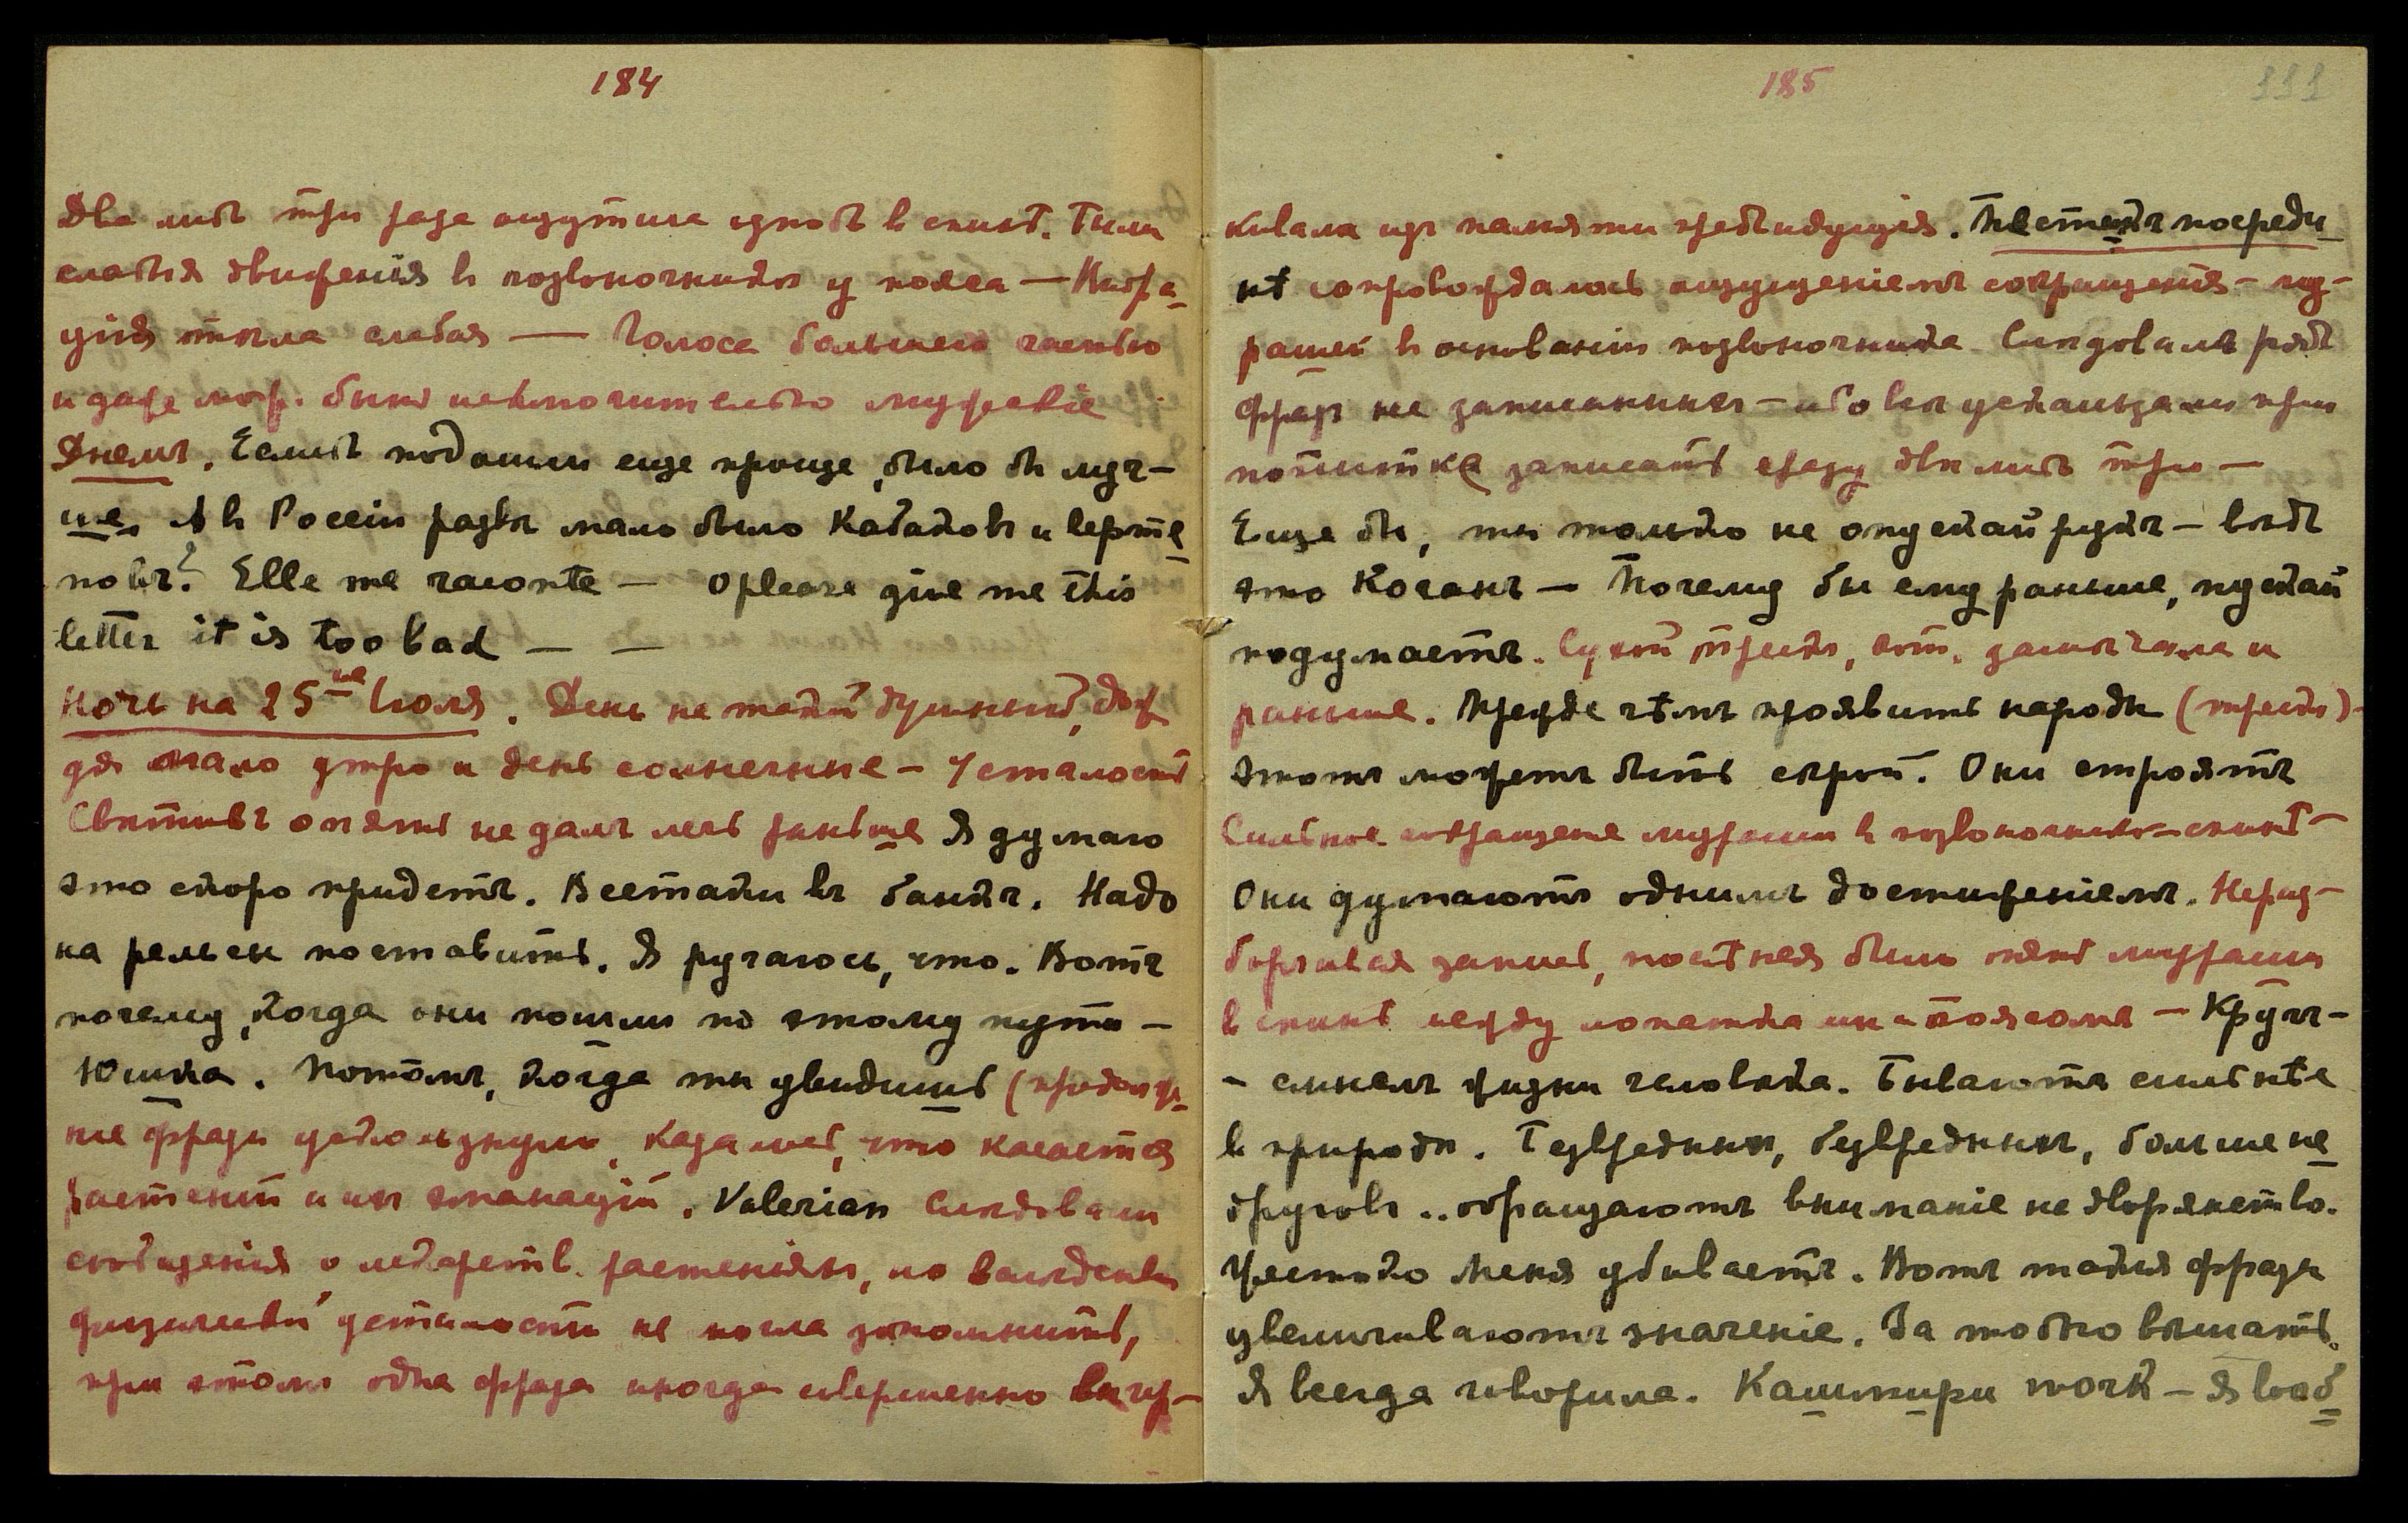 184
Два либо три раза ощутила озноб в спинѣ. Были
слабыя движенія в позвоночникѣ у пояса — Вибра-
ція тѣла слабая — Голоса большею частью
и даже мож. быть исключительно мужскіе
Днемъ. Еслибъ подошли еще проще, было бы луч-
ше. А в Россіи развѣ мало было кабаковъ и верте-
повъ? Elle me raconte — O please give me this
letter it is too bad — —
Ночь на 25ое Іюля. День не такой душный, дож
дя мало утро и день солнечные — Усталость
Святивъ опять не далъ лечь раньше Я думаю
это скоро придетъ. Всетаки въ банкѣ. Надо
на рельсы поставить. Я ручаюсь, что. Вотъ
почему, когда они пошли по этому пути —
Юшка. Потомъ, когда ты увидишь (продолже-
ніе фразы ускользнуло, казалось, что касается
растеній и их эманацій. Valerian Слѣдовали
сообщенія о лекарств. растеніях, но вслѣдствіи
физической усталости не могла запомнить,
при этом одна фраза иногда совершенно вычер-
185
111
кивала из памяти предыдущія. Цвѣтокъ посреди-
нѣ сопровождалось ощущеніемъ сокращенія — му-
рашек в основаніи позвоночника. Слѣдовалъ рядъ
фраз не записанныхъ — ибо всѣ ускользали при
попытке записать сразу двѣ либо три —
Еще бы, ты только не опускай рукъ — вѣдь
это Коганъ — Почему бы ему раньше, пускай
подумаетъ. Сухой трескъ, кот. замѣчала и
раньше. Прежде чѣмъ проявить народы (трескъ) —
Этотъ можетъ быть сѣрой. Они строятъ
Сильное сокращеніе мурашки в позвоночникѣ — спинѣ —
Они думаютъ однимъ достиженіемъ. Нераз-
борчивая запись, послѣ нея были опять мурашки
в спинѣ между лопатками и поясомъ — Кругъ —
— символъ жизни человѣка. Бываютъ сильнѣе
в природѣ. Безвредны, безвредны, больше не
друговъ .. обращаютъ вниманіе на дворянство.
Жестоко меня убиваетъ. Вотъ такія фразы
увеличиваютъ значеніе. За только вѣшать.
Я всегда говорила. Кашмири work — Я вооб